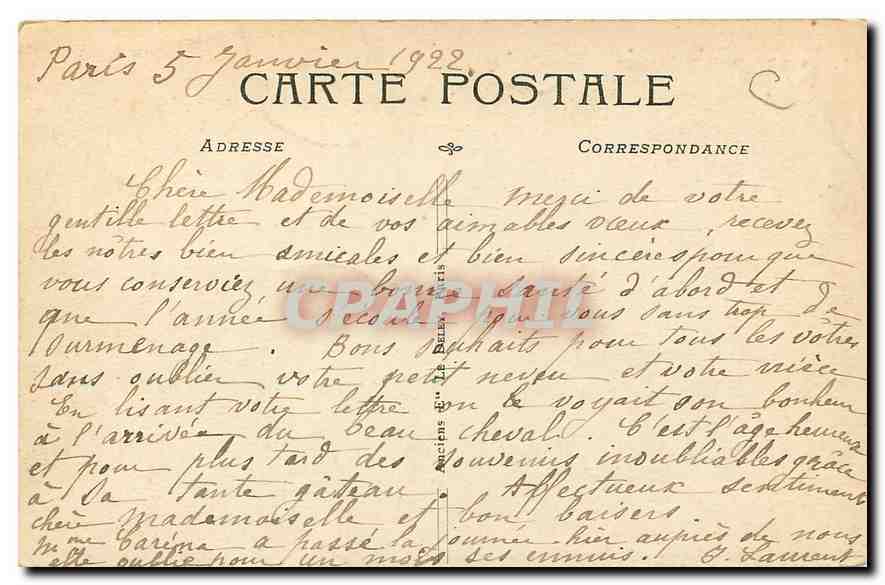 Paris 5 Janvier 1922
CARTE POSTALE
ADRESSE CORRESPONDANCE
Chère Mademoiselle merci de votre
gentille lettre et de vos aimables vœux, recevez
les nôtres bien amicales et bien sincères pour que
vous conserviez une bonne santé d'abord et
que l'année s'écoule pour vous sans trop de
surmenage. Bons souhaits pour tous les vôtres
sans oublier votre petit neveu et votre nièce
En lisant votre lettre on le voyait son bonheur
à l'arrivée du beau cheval. C'est l'âge heureux
et pour plus tard des souvenirs inoubliables grâce
à sa tante gâteau. Affectueux sentiment
chère mademoiselle et bon baisers.
Mme a passé la journée hier auprès de nous
elle oublie pour un mois ses ennuis. J. Laurent
Anciens Etts Le Deley Paris
CPAPHIL